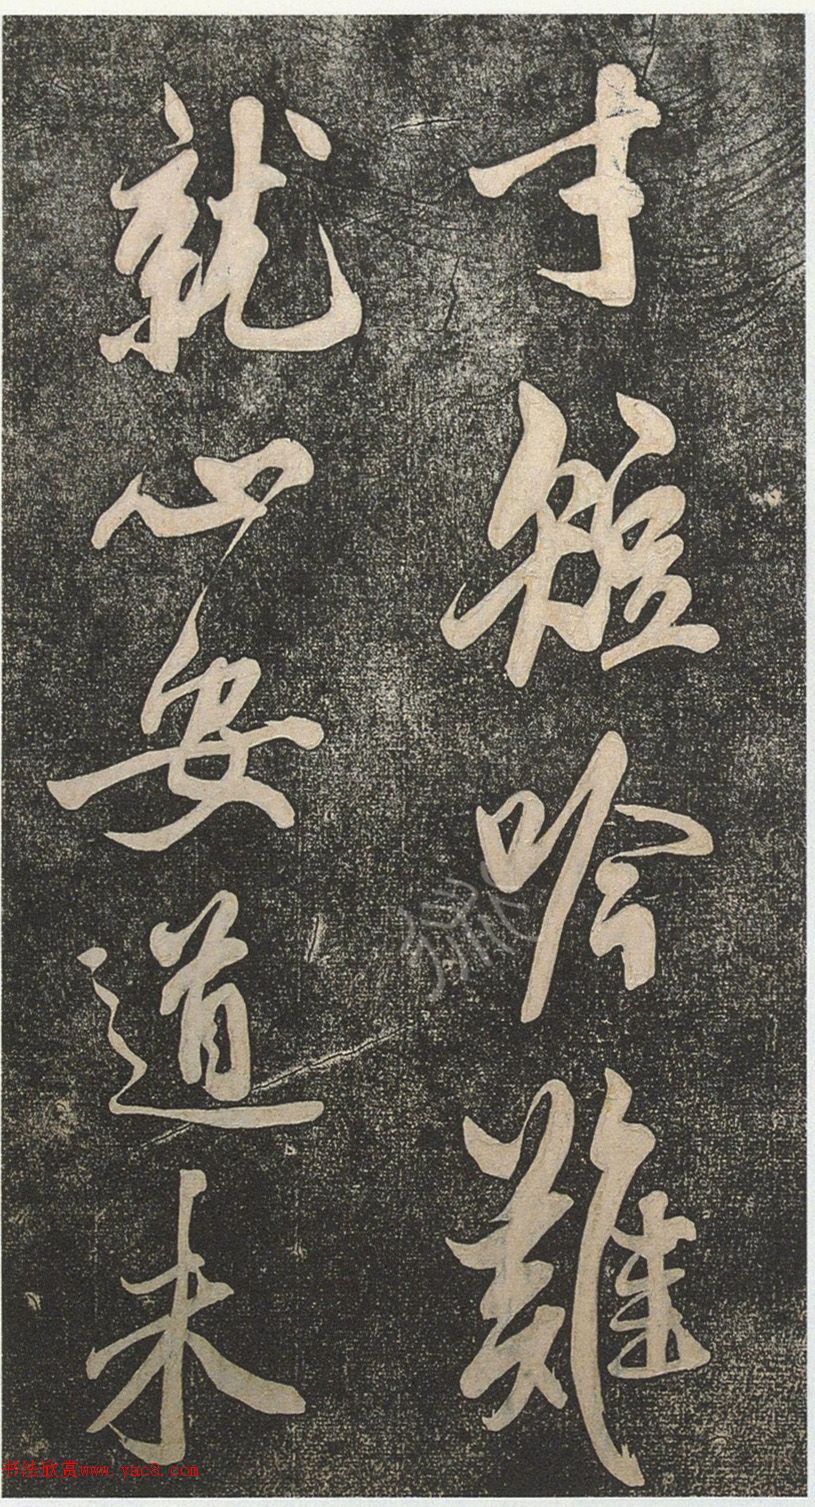 才短吟難
就心安道未
书法欣赏www.yac8.com